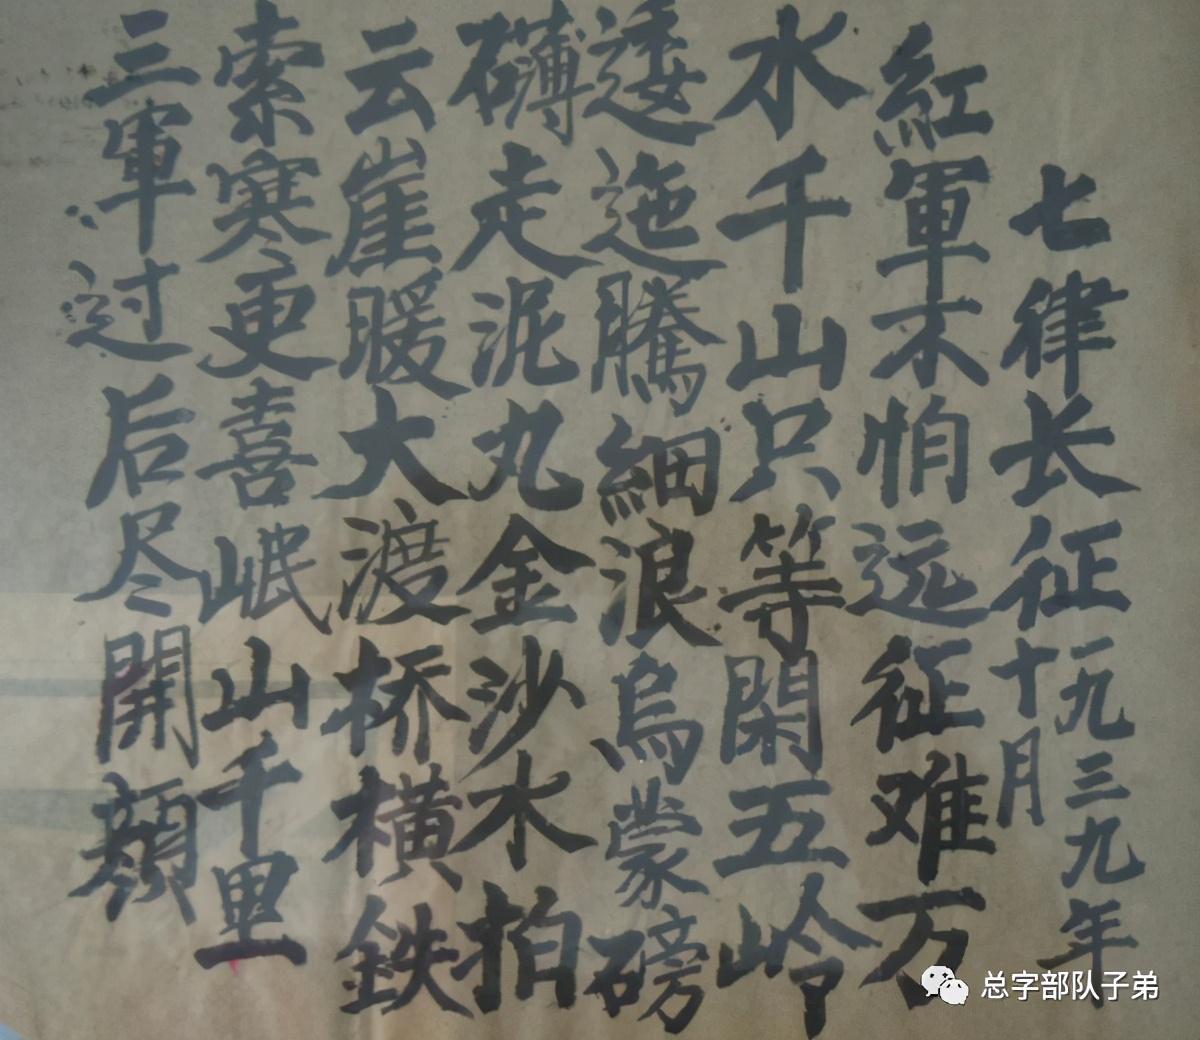 七律长征
一九三九年
十月
紅軍不怕远征难万
水千山只等閑五岭
逶迤騰細浪烏蒙磅
礴走泥丸金沙水拍
云崖暖大渡桥橫鉄
索寒更喜岷山千里
三軍过后尽開顏
总字部队子弟